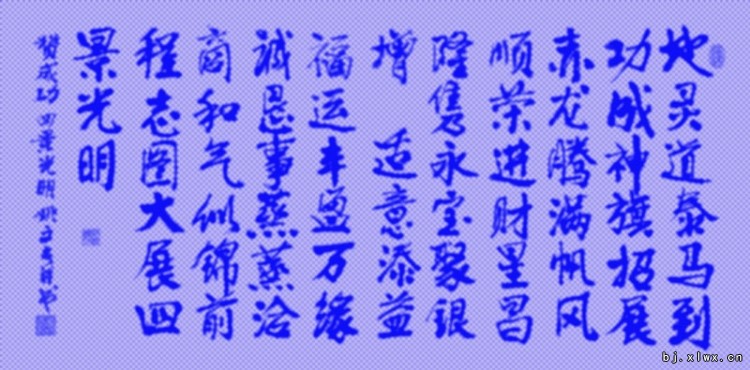 地灵道泰马到
功成神旗招展
赤龙腾满帆风
顺荣进财星昌
隆隽永宝聚银
增 适意添益
福运丰盈万缘
诚恳事蒸蒸洽
商和气似锦前
程志图大展四
景光明
赞成功四景光明
bj.xlwx.cn